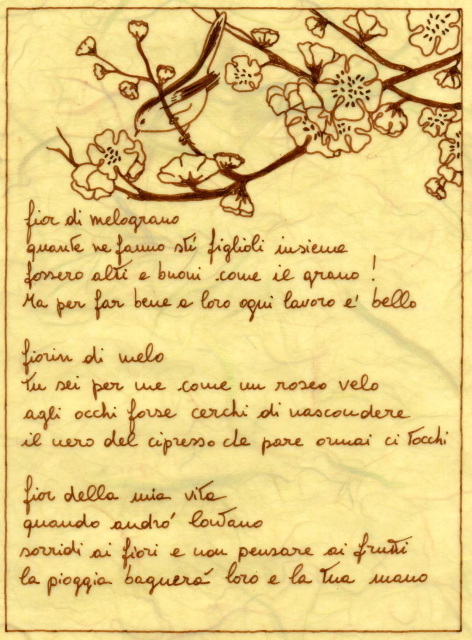 fior di melograno
quante ne fanno sti figlioli insieme
fossero alti e buoni come il grano!
Ma per far bene a loro ogni lavoro e' bello
fiorin di melo
tu sei per me come un roseo velo
agli occhi forse cerchi di nascondere
il nero del cipresso che pare ormai ci tocchi
fior della mia vita
quando andrò lontano
sorridi ai fiori e non pensare ai frutti
la pioggia bagnerà loro e la tua mano